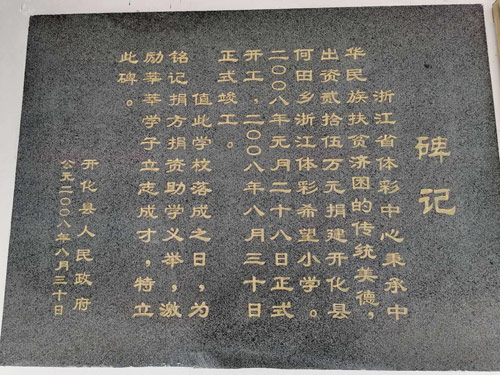 碑记
浙江省体彩中心秉承中
华民族扶贫济困的传统美德，
出资贰拾伍万元捐建开化县
何田乡浙江体彩希望小学。
二〇〇八年元月二十八日正式
开工，二〇〇八年八月三十日
正式竣工。
值此学校落成之日，为
铭记捐方捐资助学义举，激
励莘莘学子立志成才，特立
此碑。
开化县人民政府
公元二〇〇八年八月三十日